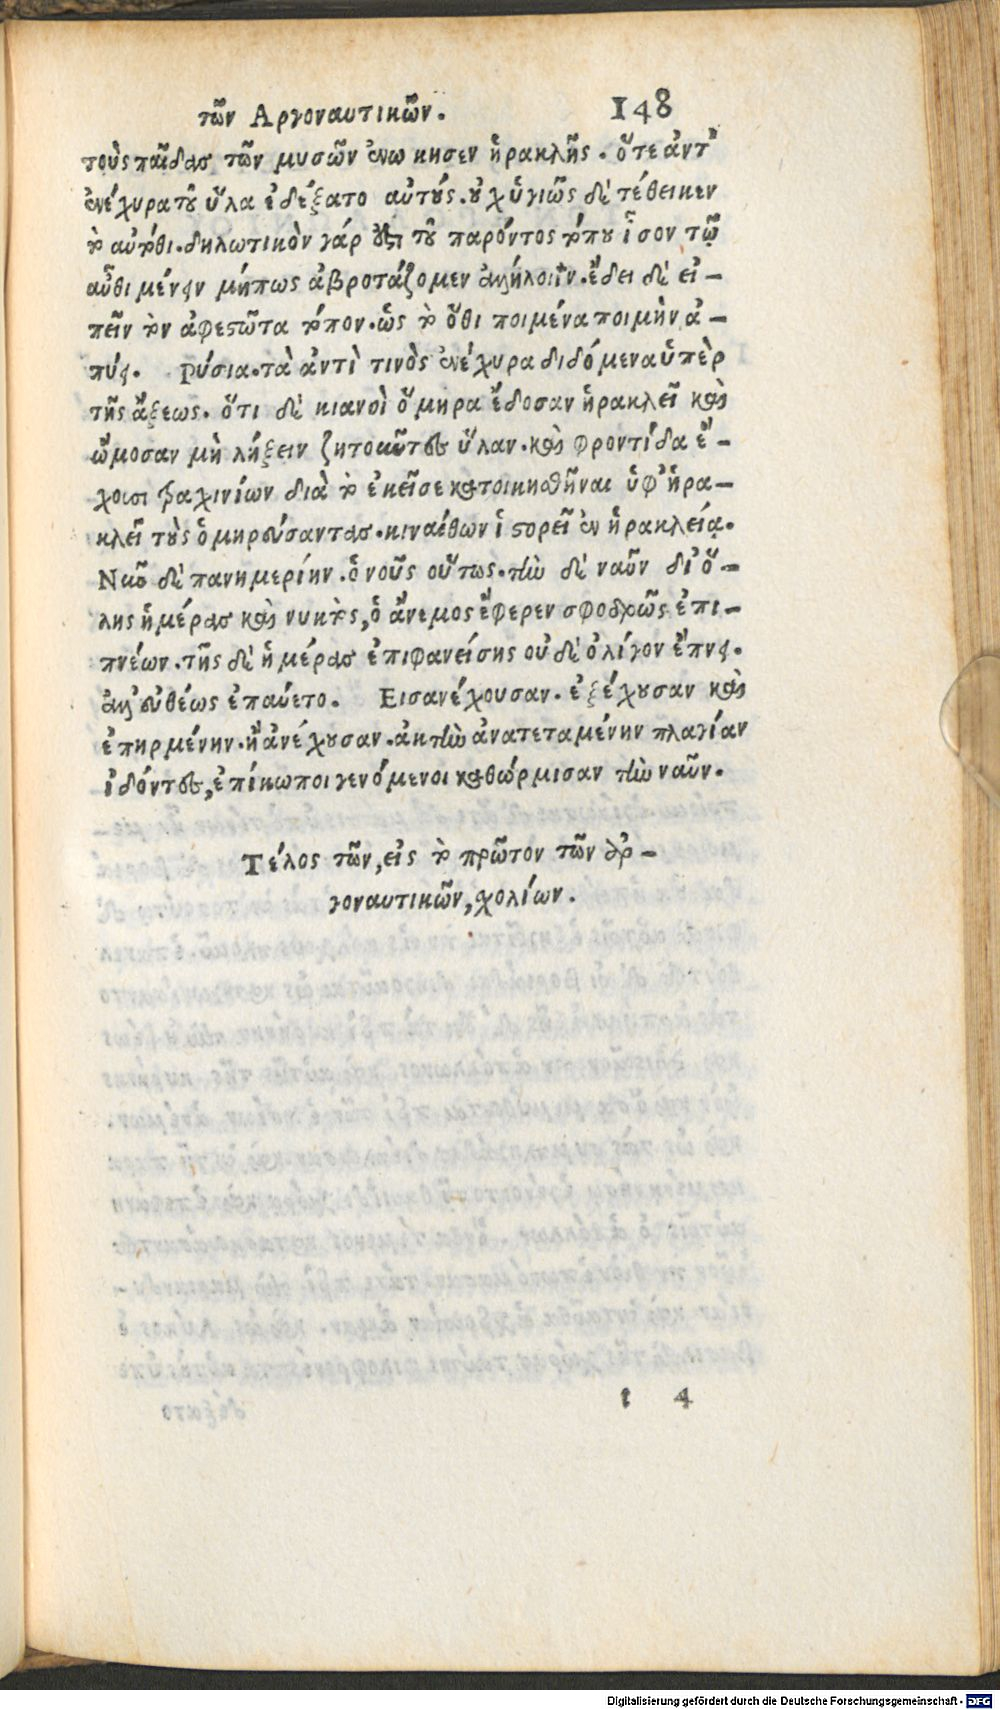 τῶν Αργοναυτικῶν. 148
τοὺς παῖδας τῶν μυσῶν ἐνῴκησεν ἡρακλῆς. ὅτε ἀντ'
ἐνέχυρα τοῦ ὕλα ἐδέξατο αὐτούς. οὐχ ὑγιῶς δὲ τέθεικεν
τὸ αὐτόθι. δηλωτικὸν γάρ ὅτι τοῦ παρόντος τόπου ἶσον τῷ
αὖθι μένειν μήπως ἀβροτάζομεν ἀλλήλοιϊν. ἔδει δὲ εἰ-
πεῖν τὸν ἀφεστῶτα τόπον. ὡς τὸ ὅθι ποιμένα ποιμὴν ἀ-
πύει. Ρύσια. τὰ ἀντὶ τινὸς ἐνέχυρα διδόμενα ὑπὲρ
τῆς ἄξεως. ὅτι δὲ κιανοὶ ὅμηρα ἔδοσαν ἡρακλεῖ καὶ
ὤμοσαν μὴ λήξειν ζητοῦντες ὕλαν. καὶ φροντίδα ἔ-
χουσι τραχινίων διὰ τὸ ἐκεῖσε κατοικισθῆναι ὑφ' ἡρα-
κλεῖ τοὺς ὁμηρούσαντας. κιναίθων ἱστορεῖ ἐν ἡρακλείᾳ.
Ναῦ δὲ πανημερίην. ὁ νοῦς οὕτως. τὴν δὲ ναῦν δι' ὅ-
λης ἡμέρας καὶ νυκτὸς, ὁ ἄνεμος ἔφερεν σφοδρῶς ἐπι-
πνέων. τῆς δὲ ἡμέρας ἐπιφανείσης οὐδὲ ὀλίγον ἔπνει.
ἀλλ' εὐθέως ἐπαύετο. Εἰσανέχουσαν. ἐξέχουσαν καὶ
ἐπηρμένην. ἢ ἀνέχουσαν. ἀκτὴν ἀνατεταμένην πλαγίαν
ἰδόντες, ἐπίκωποι γενόμενοι καθώρμισαν τὴν ναῦν.
Τέλος τῶν, εἰς τὸ πρῶτον τῶν ἀρ-
γοναυτικῶν, σχολίων.
t 4
Digitalisierung gefördert durch die Deutsche Forschungsgemeinschaft - DFG